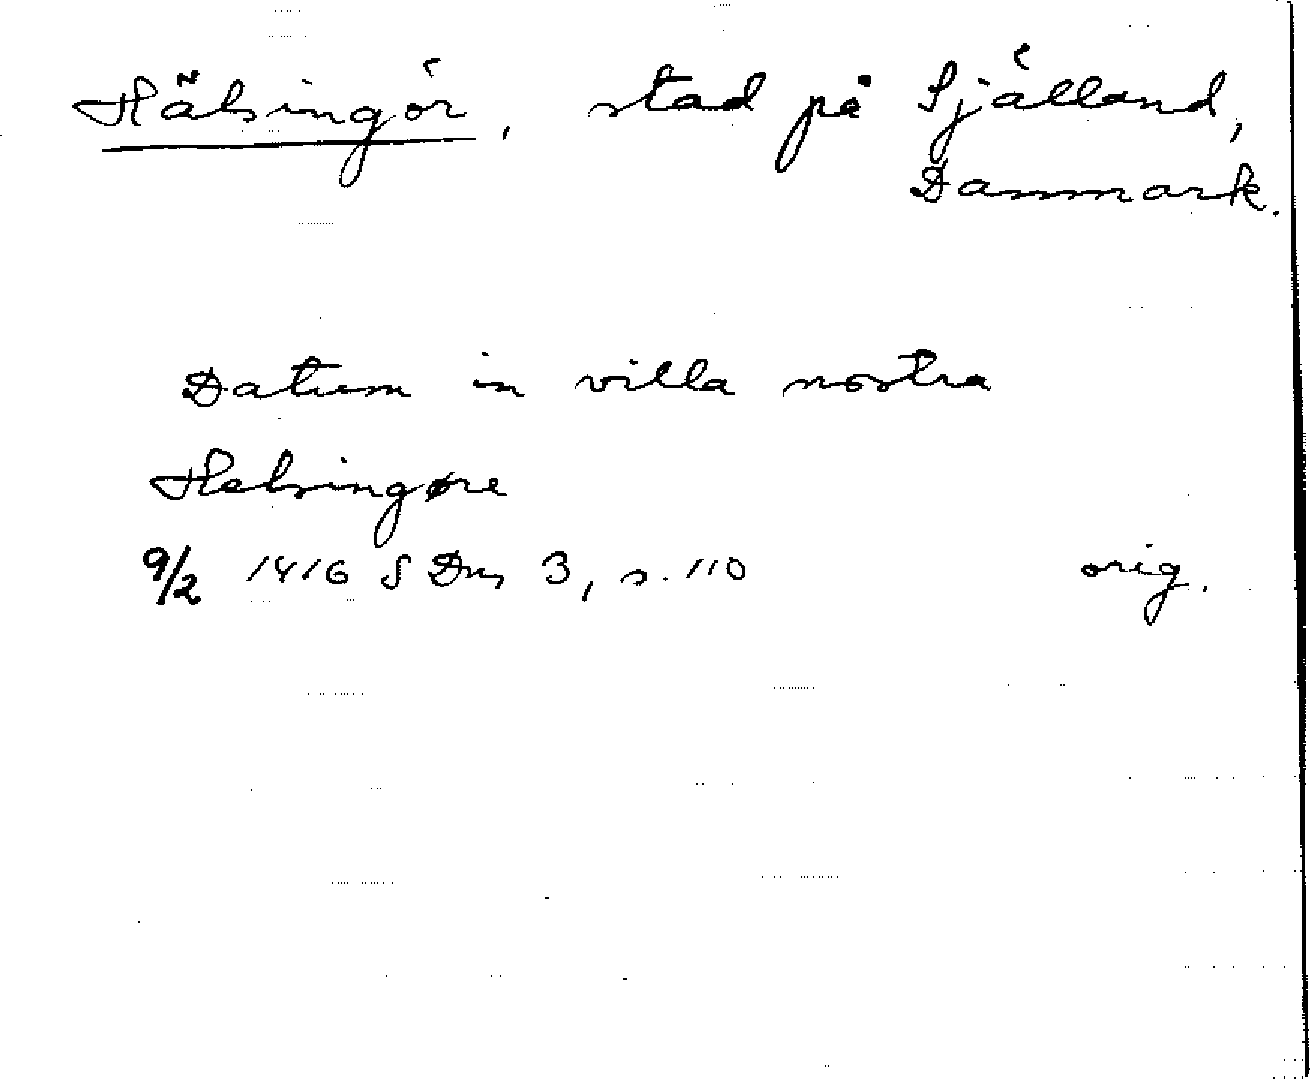 Hälsingör, stad på Själland,
Danmark.
Datum in villa nostra
Helsingøre
9/2 1416 SDns 3, s. 110 orig.